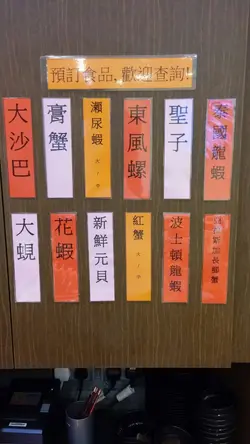 預訂食品,歡迎查詢!
大沙巴
膏蟹
瀨尿蝦
東風螺
聖子
泰國龍蝦
大蜆
花蝦
新鮮元貝
紅蟹
波士頓龍蝦
加長腳蟹